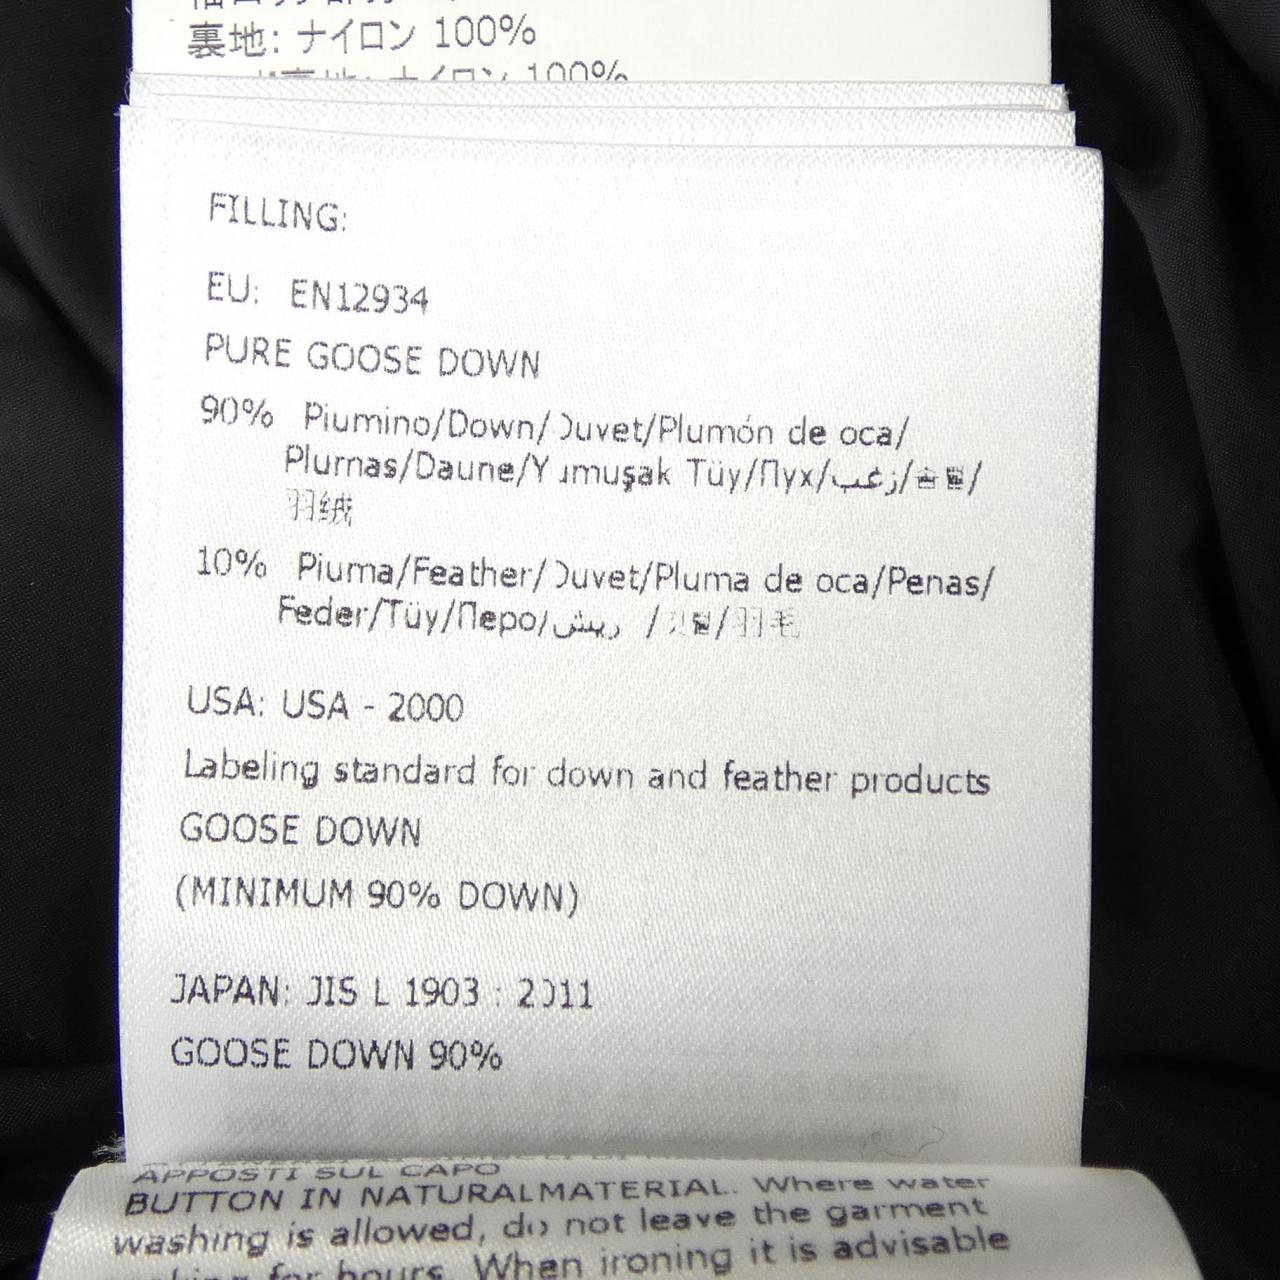 裏地: ナイロン 100%
裏地: ナイロン 100%
FILLING:
EU: EN12934
PURE GOOSE DOWN
90% Piumino/Down/Duvet/Plumón de oca/
Plumas/Daune/Yumuşak Tüy/Пух/زغب/솜털/
羽绒
10% Piuma/Feather/Duvet/Pluma de oca/Penas/
Feder/Tüy/Перо/ريش /깃털/羽毛
USA: USA - 2000
Labeling standard for down and feather products
GOOSE DOWN
(MINIMUM 90% DOWN)
JAPAN: JIS L 1903 : 2011
GOOSE DOWN 90%
APPOSTI SUL CAPO
BUTTON IN NATURALMATERIAL. Where water
washing is allowed, do not leave the garment
for hours. When ironing it is advisable